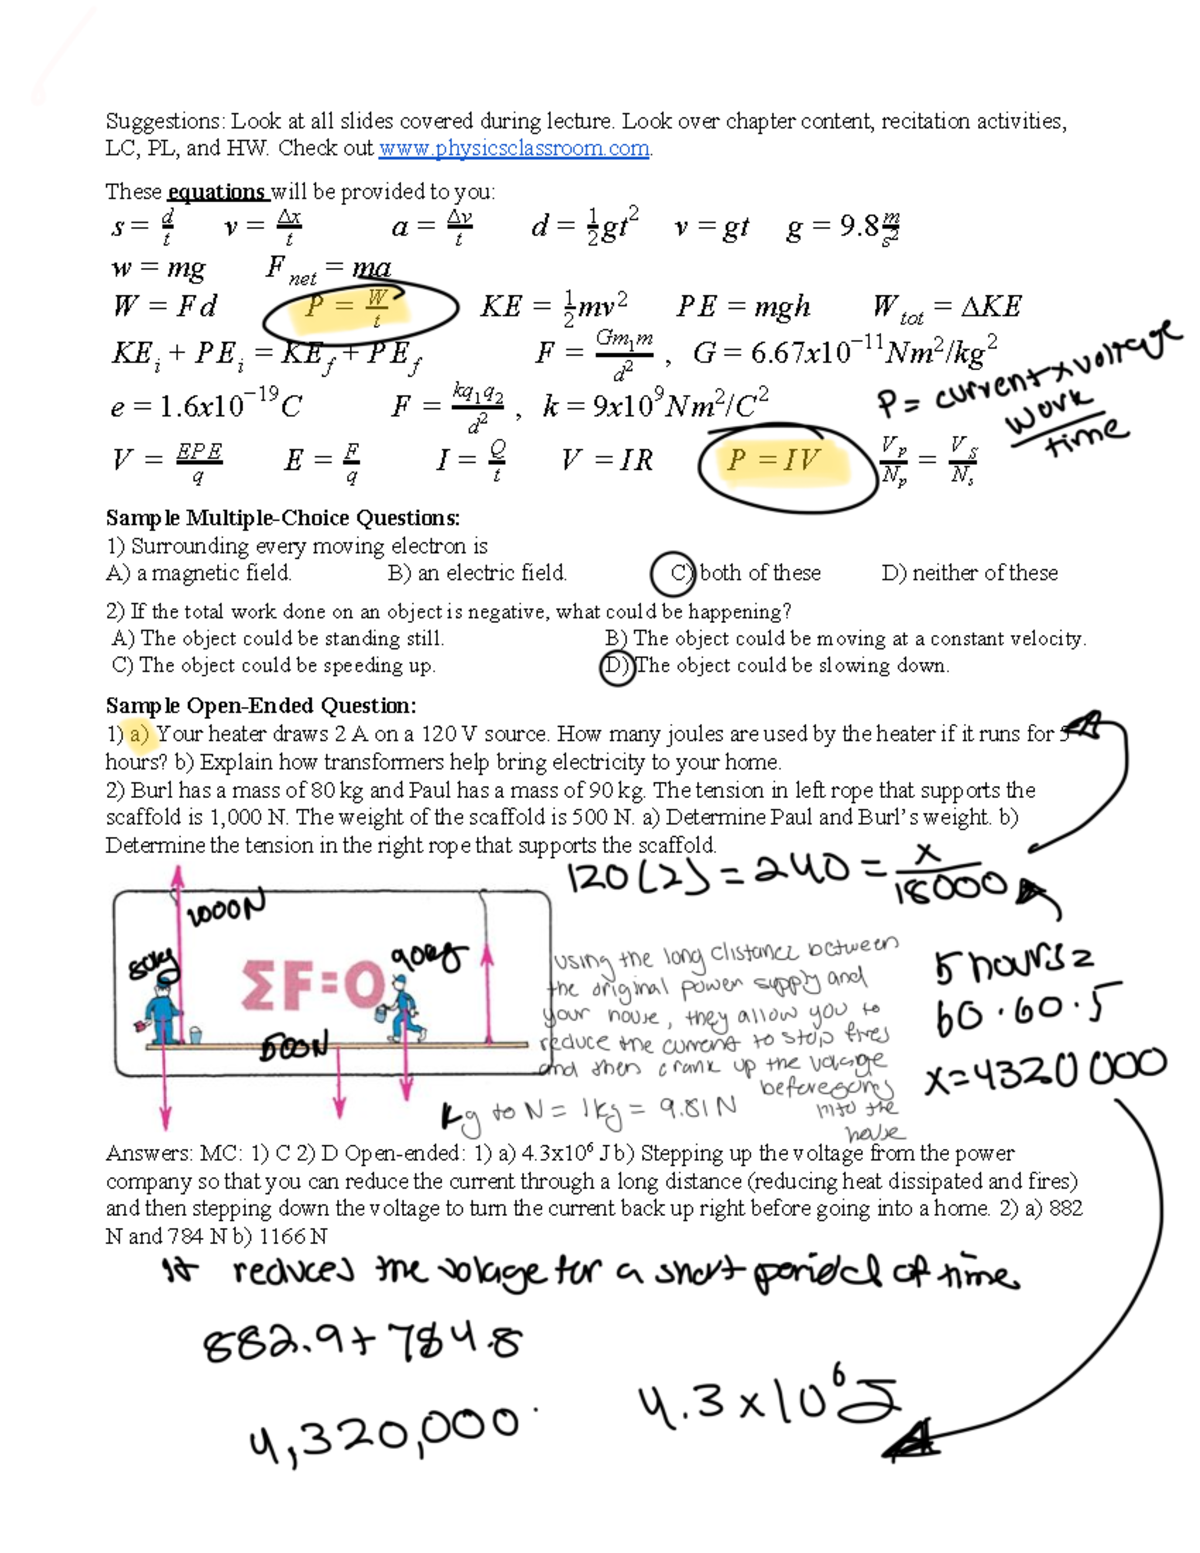 Suggestions: Look at all slides covered during lecture. Look over chapter content, recitation activities,
LC, PL, and HW. Check out www.physicsclassroom.com.
These equations will be provided to you:
s = d/t v = Δx/t a = Δv/t d = 1/2 gt² v = gt g = 9.8 m/s²
w = mg F_net = ma
W = Fd P = W/t KE = 1/2 mv² PE = mgh W_tot = ΔKE
KE_i + PE_i = KE_f + PE_f F = Gm₁m/d² , G = 6.67x10⁻¹¹Nm²/kg²
e = 1.6x10⁻¹⁹C F = kq₁q₂/d² , k = 9x10⁹Nm²/C²
P = current x voltage
work/time
V = EPE/q E = F/q I = Q/t V = IR P = IV V_p/N_p = V_s/N_s
Sample Multiple-Choice Questions:
1) Surrounding every moving electron is
A) a magnetic field. B) an electric field. C) both of these D) neither of these
2) If the total work done on an object is negative, what could be happening?
A) The object could be standing still. B) The object could be moving at a constant velocity.
C) The object could be speeding up. D) The object could be slowing down.
Sample Open-Ended Question:
1) a) Your heater draws 2 A on a 120 V source. How many joules are used by the heater if it runs for 5
hours? b) Explain how transformers help bring electricity to your home.
2) Burl has a mass of 80 kg and Paul has a mass of 90 kg. The tension in left rope that supports the
scaffold is 1,000 N. The weight of the scaffold is 500 N. a) Determine Paul and Burl's weight. b)
Determine the tension in the right rope that supports the scaffold.
120(2) = 240 = x/18000
1000N
80kg
90kg
ΣF=0
500N
using the long distance between
the original power supply and
your house, they allow you to
reduce the current to stop fires
and then crank up the voltage
before going
into the
house
5 hours =
60·60·5
x=4320000
kg to N = 1kg = 9.81N
Answers: MC: 1) C 2) D Open-ended: 1) a) 4.3x10⁶ J b) Stepping up the voltage from the power
company so that you can reduce the current through a long distance (reducing heat dissipated and fires)
and then stepping down the voltage to turn the current back up right before going into a home. 2) a) 882
N and 784 N b) 1166 N
It reduces the volage for a short period of time
882.9+784.8
4,320,000
4.3x10⁶J